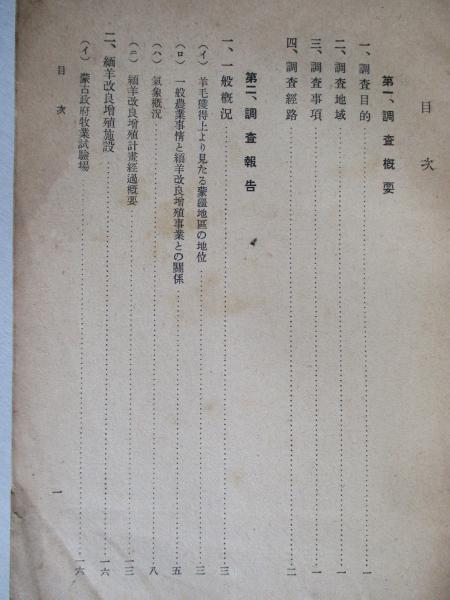 目次
第一、調査概要
一、調査目的……一
二、調査地域……一
三、調査事項……一
四、調査經路……二
第二、調査報告
一、一般概況……三
(イ) 羊毛獲得上より見たる蒙疆地區の地位……三
(ロ) 一般農業事情と緬羊改良增殖事業との關係……五
(ハ) 氣象概況……八
(ニ) 緬羊改良增殖計畫經過概要……一三
二、緬羊改良增殖施設……一六
(イ) 蒙古政府牧業試驗場……一六
目次 一